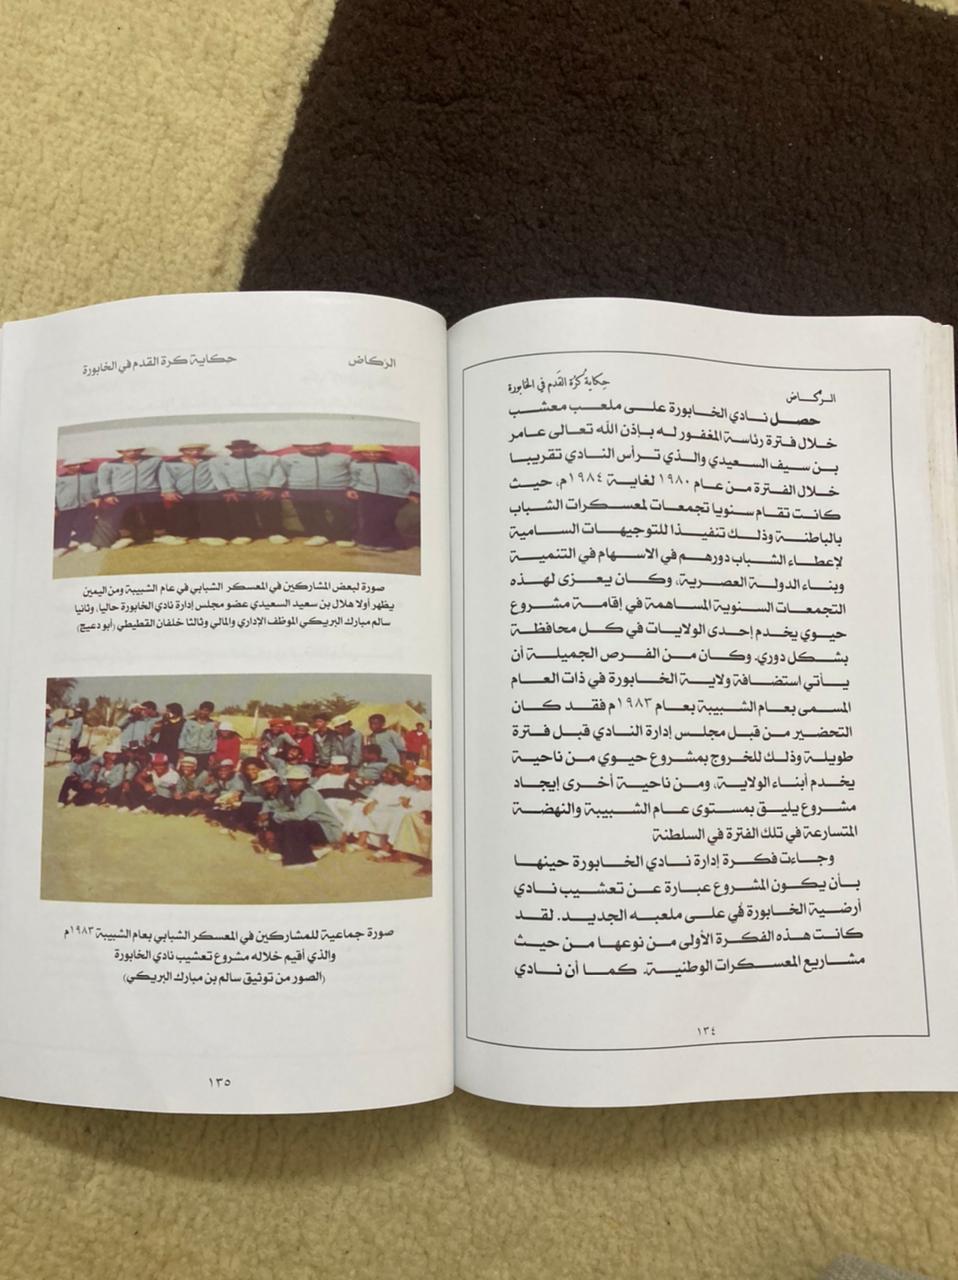 الركاض
حكاية كرة القدم في الخابورة
حصل نادي الخابورة على ملعب معشب
خلال فترة رئاسة المغفور له بإذن الله تعالى عامر
بن سيف السعيدي والذي ترأس النادي تقريبا
خلال الفترة من عام ١٩٨٠ لغاية ١٩٨٤م، حيث
كانت تقام سنويا تجمعات لمعسكرات الشباب
بالباطنة وذلك تنفيذا للتوجيهات السامية
لإعطاء الشباب دورهم في الاسهام في التنمية
وبناء الدولة العصرية، وكان يعزى لهذه
التجمعات السنوية المساهمة في إقامة مشروع
حيوي يخدم إحدى الولايات في كل محافظة
بشكل دوري. وكان من الفرص الجميلة أن
يأتي استضافة ولاية الخابورة في ذات العام
المسمى بعام الشبيبة بعام ١٩٨٣م فقد كان
التحضير من قبل مجلس إدارة النادي قبل فترة
طويلة وذلك للخروج بمشروع حيوي من ناحية
يخدم أبناء الولاية، ومن ناحية أخرى إيجاد
مشروع يليق بمستوى عام الشبيبة والنهضة
المتسارعة في تلك الفترة في السلطنة
وجاءت فكرة إدارة نادي الخابورة حينها
بأن يكون المشروع عبارة عن تعشيب نادي
أرضية الخابورة في على ملعبه الجديد. لقد
كانت هذه الفكرة الأولى من نوعها من حيث
مشاريع المعسكرات الوطنية. كما أن نادي
١٣٤
الركاض
حكاية كرة القدم في الخابورة
صورة لبعض المشاركين في المعسكر الشبابي في عام الشبيبة ومن اليمين
يظهر أولا هلال بن سعيد السعيدي عضو مجلس إدارة نادي الخابورة حاليا، وثانيا
سالم مبارك البريكي الموظف الإداري والمالي وثالثا خلفان القطيطي (أبو دعيج)
صورة جماعية للمشاركين في المعسكر الشبابي بعام الشبيبة ١٩٨٣م
والذي أقيم خلاله مشروع تعشيب نادي الخابورة
(الصور من توثيق سالم بن مبارك البريكي)
١٣٥